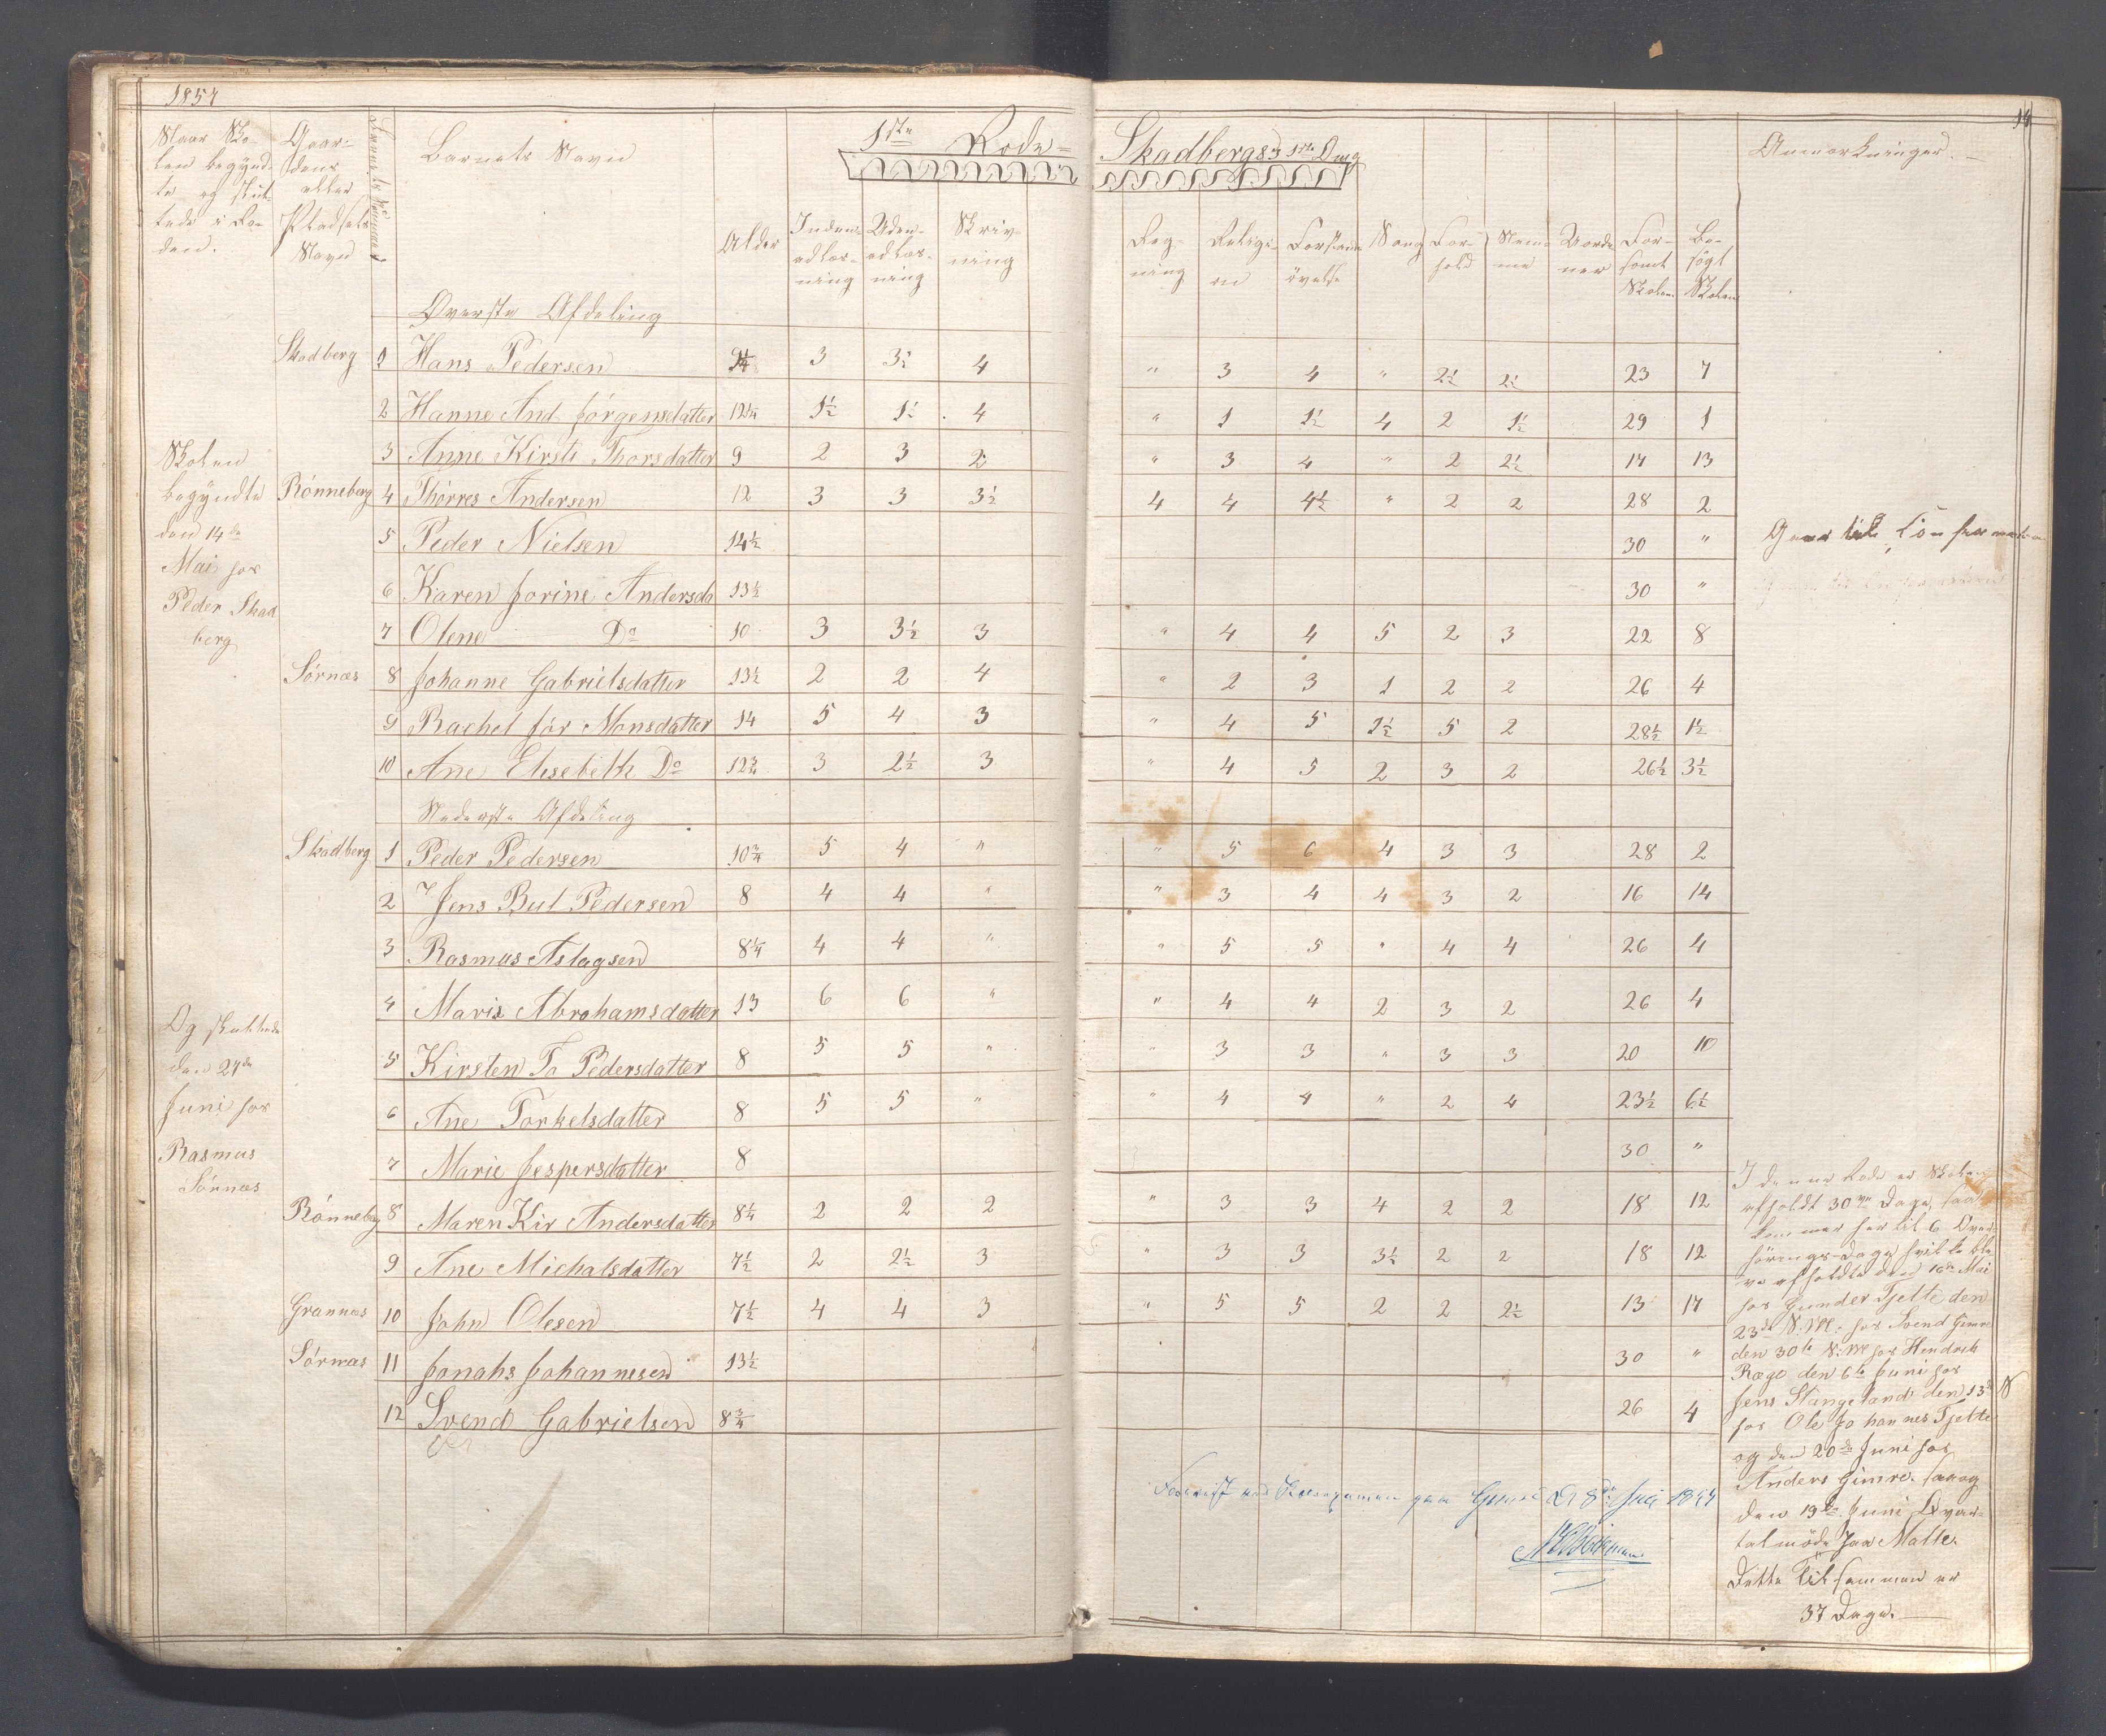 1857
1ste Rode
Skadbergs 1ste Omg
Naar Sko-
len begynd-
te og slut-
tede i Ro-
den.
Gaar-
dens
eller
Pladsets
Navn
Barnets Navn
Alder
Inden-
adlæs-
ning
Uden-
adlæs-
ning
Skriv-
ning
Reg-
ning
Religi-
on
Forstands-
övelse
Sang
For-
hold
Nem-
me
For-
sømt
Skolen
Be-
søgt
Skolen
Anmærkninger.
Øverste Afdeling
Skadberg 1 Hans Pedersen 3 3½ 4 " 3 4 " 2½ 2½ 23 7
2 Hanne And. Jörgensdatter 12¼ 1½ 1½ 4 " 1 1½ 4 2 1½ 29 1
3 Anne Kirsti Thorsdatter 9 2 3 2 " 3 4 " 2 2½ 17 13
Rönneberg 4 Thörres Andersen 12 3 3 3½ 4 4 4½ " 2 2 28 2
5 Peder Nielsen 14½ 30 " Gaar til Confirmation
6 Karen Jorine Andersda 13½ 30 "
7 Olene Do 10 3 3½ 3 " 4 4 5 2 3 22 8
Sörnæs 8 Johanne Gabrielsdatter 13½ 2 2 4 " 2 3 1 2 2 26 4
9 Rachel Jör Monsdatter 14 5 4 3 " 4 5 1½ 5 2 28½ 1½
10 Ane Elisebeth Do 12¾ 3 2½ 3 " 4 5 2 3 2 26½ 3½
Nederste Afdeling
Skadberg 1 Peder Pedersen 10¾ 5 4 " " 5 6 4 3 3 28 2
2 Jens Bul Pedersen 8 4 4 " " 3 4 4 3 2 16 14
3 Rasmus Aslagsen 8¼ 4 4 " " 5 5 " 4 4 26 4
4 Maria Abrahamsdatter 13 6 6 " " 4 4 2 3 2 26 4
5 Kirsten To Pedersdatter 8 5 5 " " 3 3 " 3 3 20 10
6 Ane Torkelsdatter 8 5 5 " " 4 4 " 2 4 23½ 6½
7 Marie Jespersdatter 8 30 "
Rönneberg 8 Maren Kir Andersdatter 8¼ 2 2 2 " 3 3 4 2 2 18 12
9 Ane Michalsdatter 7½ 2 2½ 3 " 3 3 3½ 2 2 18 12
Grannæs 10 John Olesen 7½ 4 4 3 " 5 5 2 2 2½ 13 17
Sörnæs 11 Jonahs Johannesen 13½ 30 "
12 Svend Gabrielsen 8¾ 26 4
Skolen
begyndte
den 14de
Mai hos
Peder Skad
berg
Og sluttede
den 27de
Juni hos
Rasmus
Sörnæs
I denne Rode er Skolen
afholdt 30ve Dage, saa
kommer her til 6 Over-
hörings-Dage hvilke ble
ve afholdte den 16de Mai
hos Gunder Tjelte den
23de N: M: hos Svend Gimre
den 30te N: M hos Hendrik
Ræge den 6te Juni hos
Jens Stangeland den 13de
hos Ole Johannes Tjelte
og den 20de Juni hos
Anders Gimre. samt
den 19de Juni Qvar-
talmöde paa Malle.
Dette tilsammen er
37 Dage.